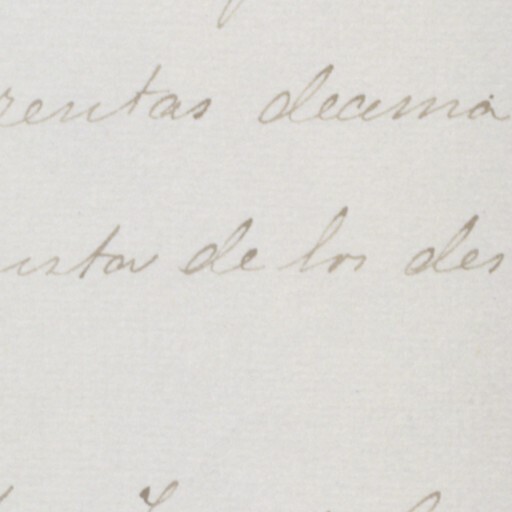 rentas decima
ista de los des